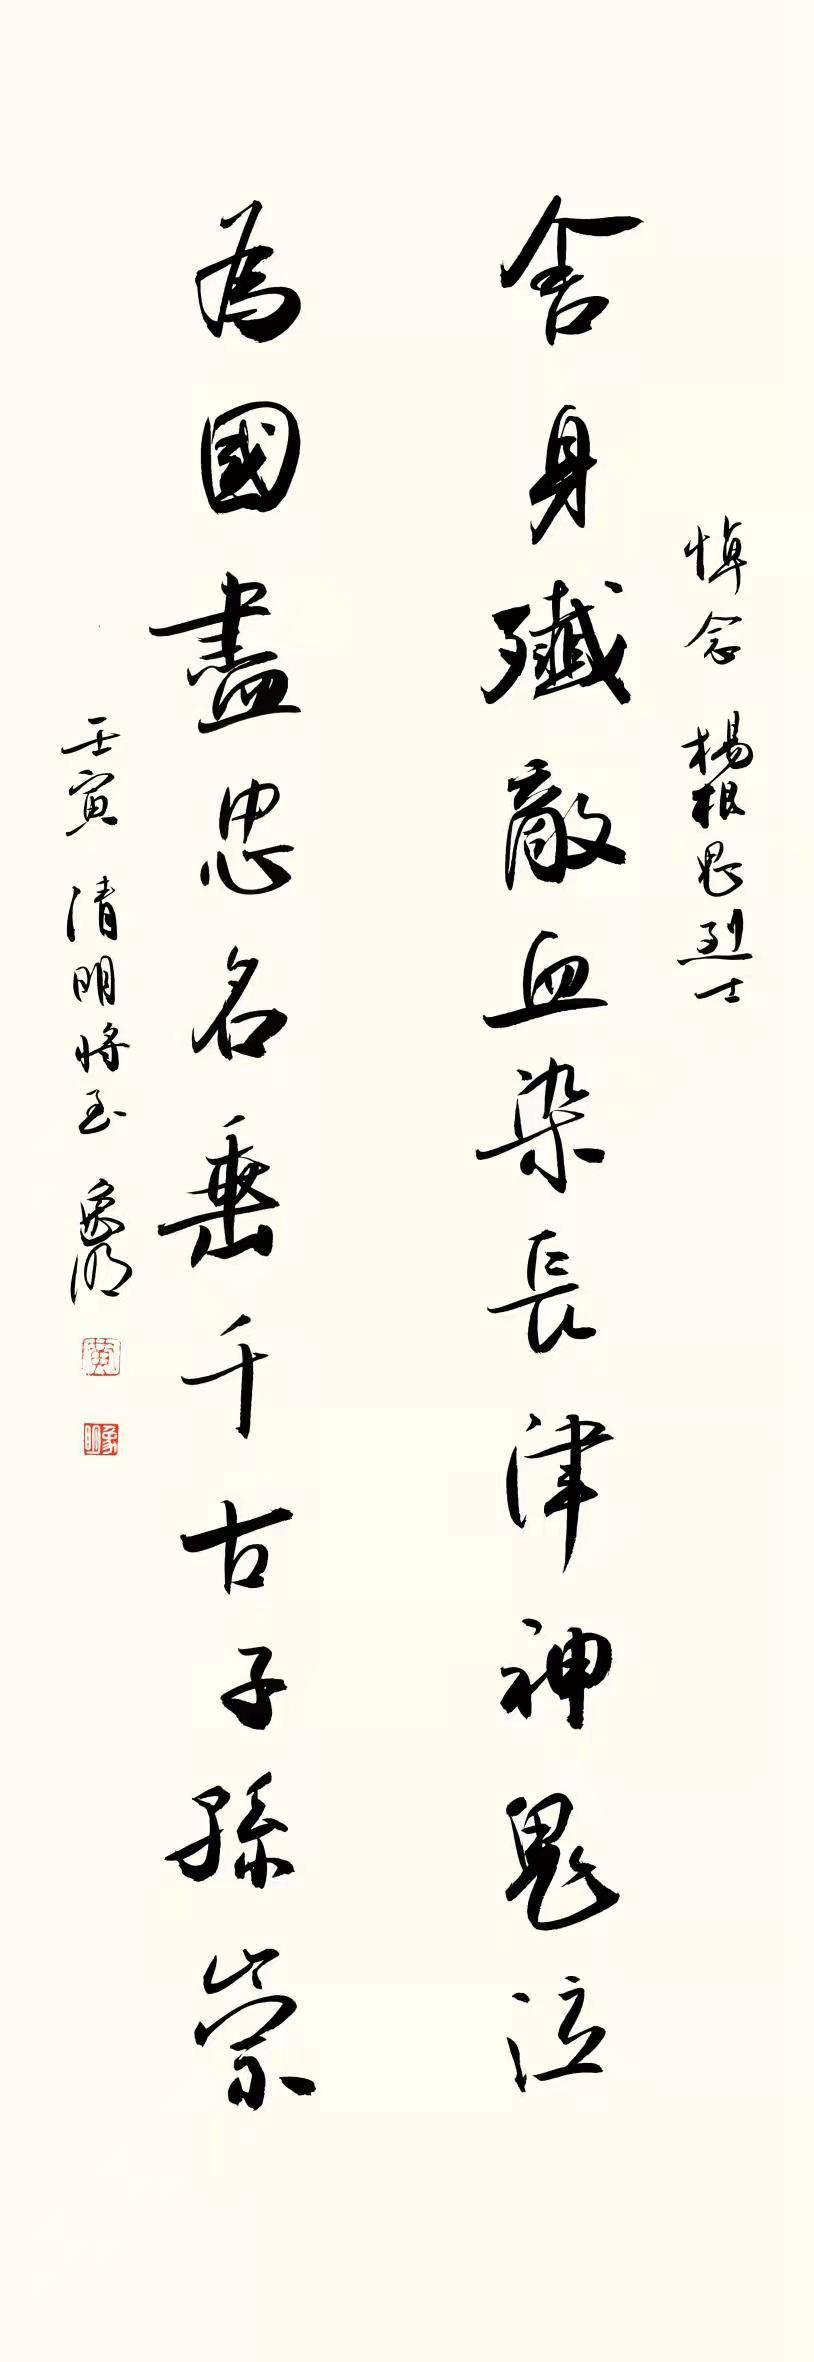 悼念 楊根思烈士
舍身殲敵血染長津神鬼泣
為國盡忠名垂千古子孫崇
壬寅 清明將至 象明
黄
象明